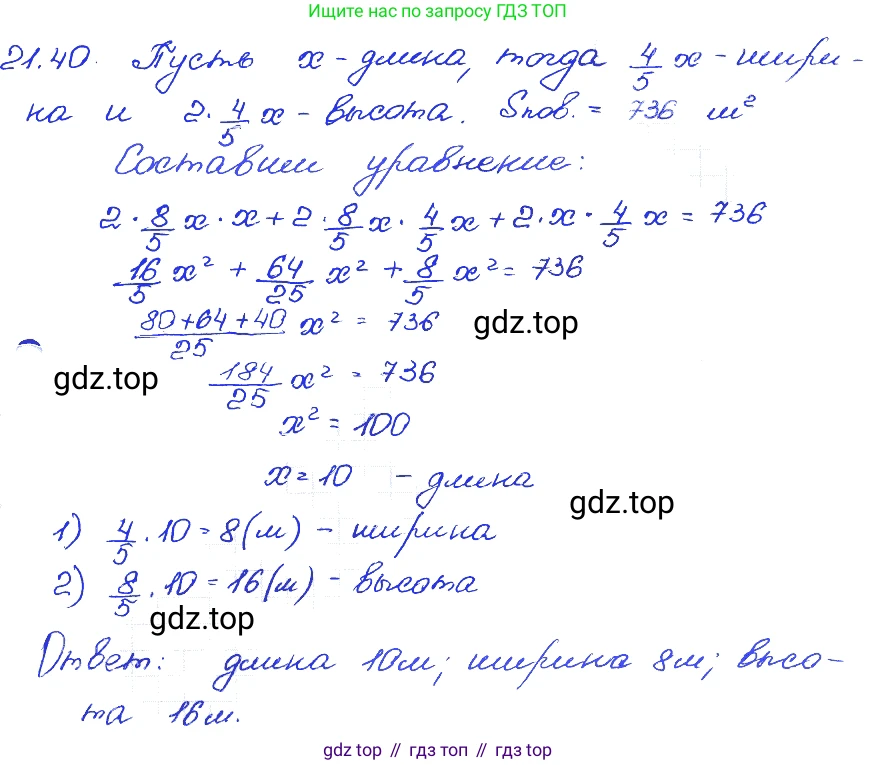 Ищите нас по запросу ГДЗ ТОП
21.40. Пусть x - длина, тогда 4/5 x - шири-
на и 2·4/5 x - высота. Sпов. = 736 м²
Составим уравнение:
2·8/5 x·x + 2·8/5 x·4/5 x + 2·x·4/5 x = 736
16/5 x² + 64/25 x² + 8/5 x² = 736
(80+64+40)/25 x² = 736 gdz.top
gdz.top 184/25 x² = 736
x² = 100
x = 10 - длина
gdz.top
1) 4/5·10 = 8(м) - ширина
2) 8/5·10 = 16(м) - высота
gdz.top
Ответ: длина 10м; ширина 8м; высо-
та 16м.
gdz top // гдз топ // gdz.top